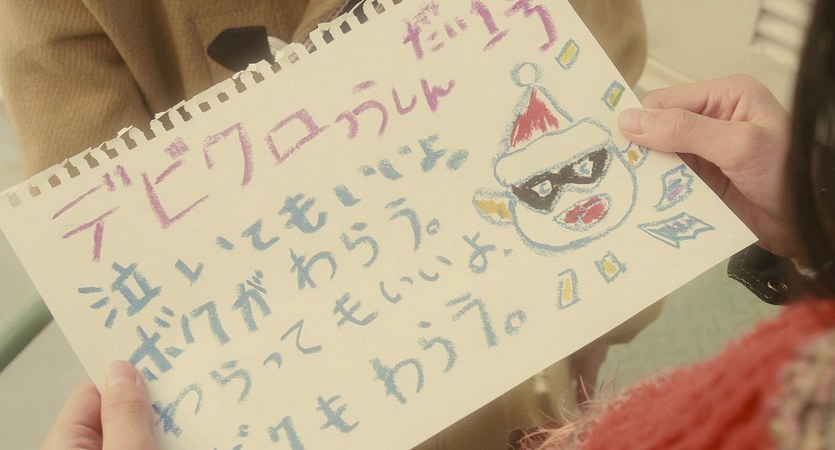 デビクロつうしん だい1号
泣いてもいいよ。
ボクがわらう。
わらってもいいよ。
ボクもわらう。